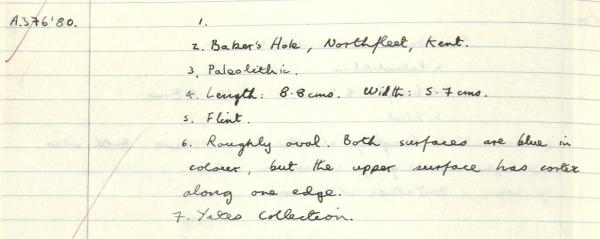 A.376'80. 1.
2. Baker's Hole, Northfleet, Kent.
3. Paleolithic.
4. Length: 8.8 cms. Width: 5.7 cms.
5. Flint.
6. Roughly oval. Both surfaces are blue in
colour, but the upper surface has cortex
along one edge.
7. Yates Collection.